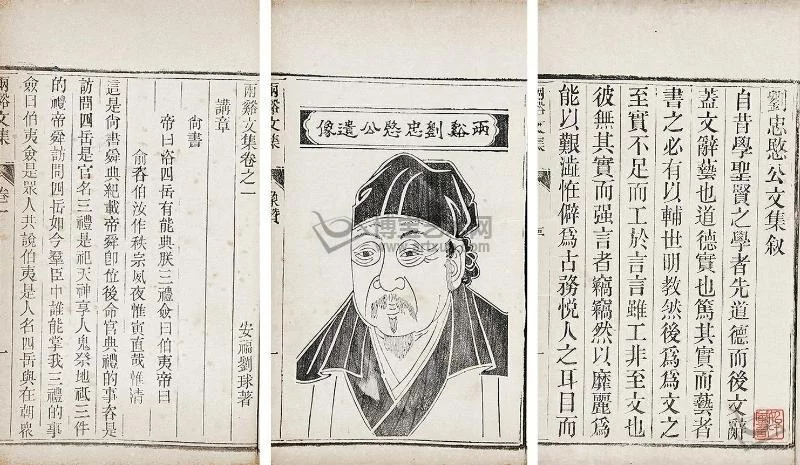 劉忠愍公文集叙
自昔學聖賢之學者先道德而後文辭
蓋文辭藝也道德實也篤其實而藝者
書之必有以輔世明教然後爲爲文之
至實不足而工於言言雖工非至文也
彼無其實而强言者竊竊然以靡麗爲
能以艱澁恠僻爲古務悅人之耳目而
兩谿文集
一
兩谿劉忠愍公遺像
兩谿文集
像贊
一
兩谿文集卷之一
安福劉球著
講章
尙書
帝曰咨四岳有能典朕三禮僉曰伯夷帝曰
俞咨伯汝作秩宗夙夜惟寅直哉惟清
這是尙書舜典紀載帝舜卽位後命官典禮的事咨是
訪問四岳是官名三禮是祀天神享人鬼祭地祗三件
的禮帝舜訪問四岳如今羣臣中誰能掌我三禮的事
僉曰伯夷僉是眾人共說伯夷是人名四岳與在朝眾
兩谿文集
卷一
一